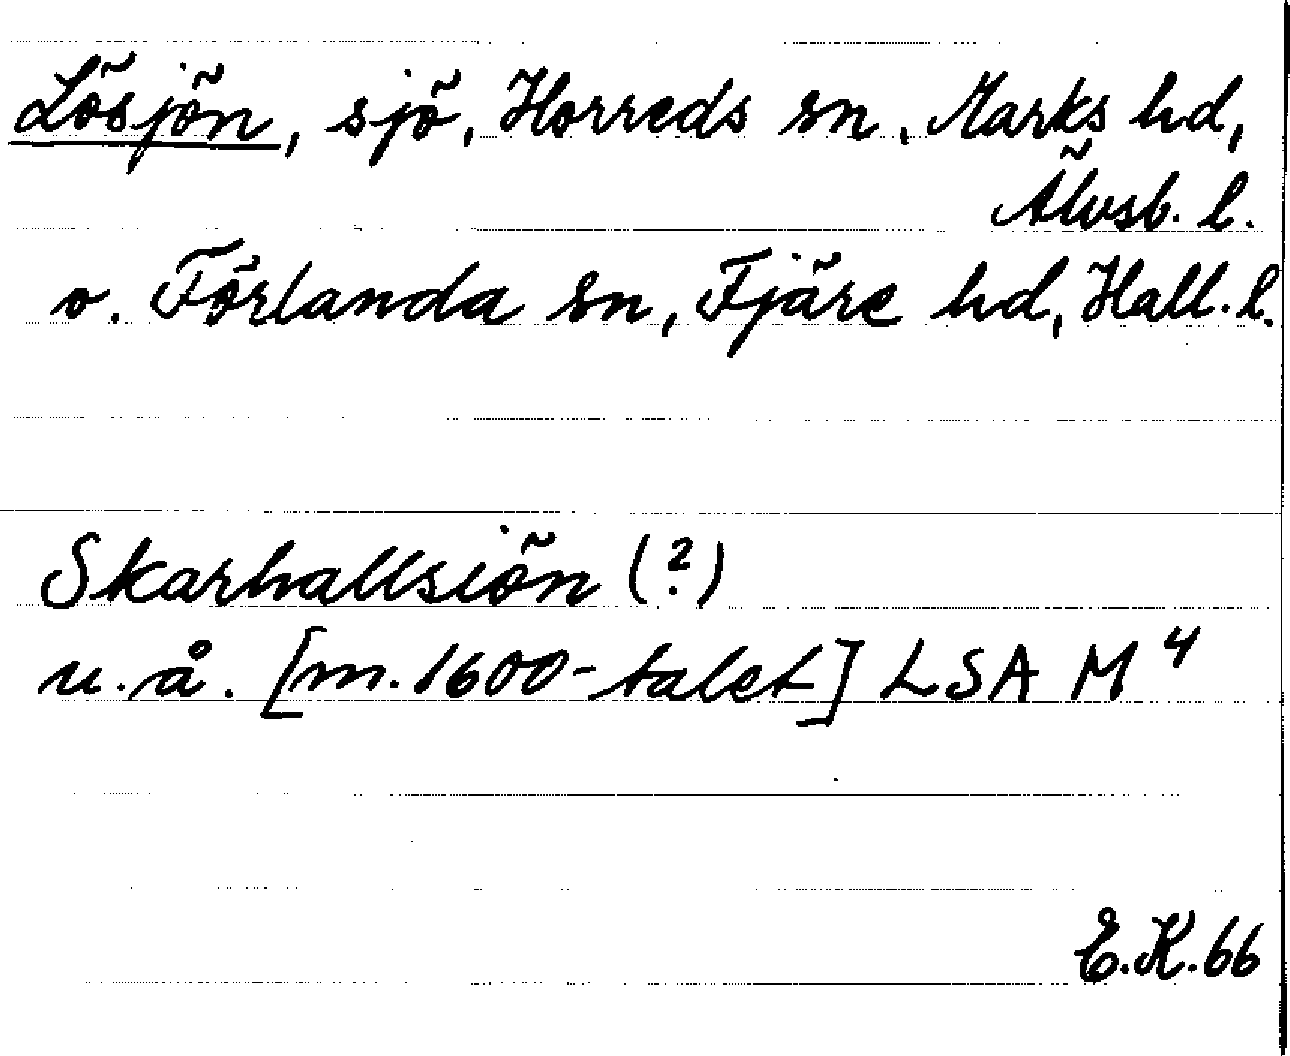 Lösjön, sjö, Horreds sn, Marks hd,
Älvsb. l.
o. Förlanda sn, Fjäre hd, Hall. l.
Skarhallsiön (?)
u. å. [m. 1600-talet] LSA M⁴
E.K. 66